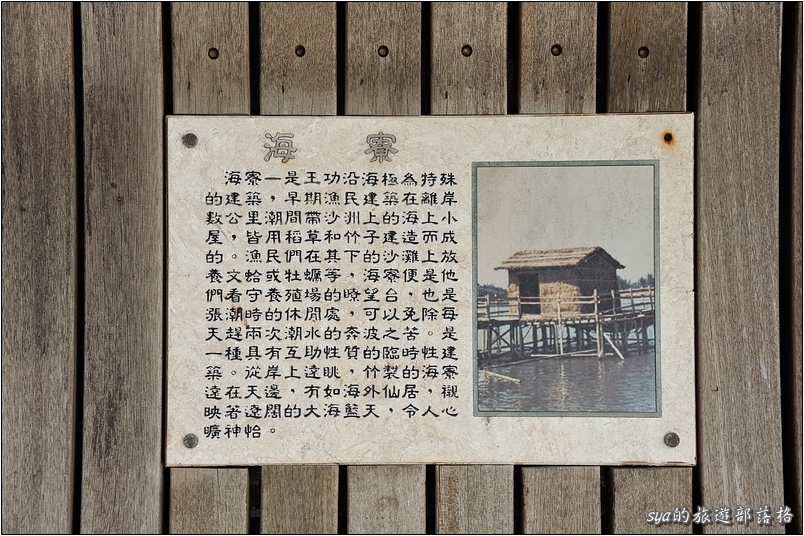 海寮
海寮一是王功沿海極為特殊
的建築，早期漁民建築在離岸
數公里潮間帶沙洲上的海上小
屋，皆用稻草和竹子建造而成
的。漁民們在其下的沙灘上放
養文蛤或牡蠣等，海寮便是他
們看守養殖場的瞭望台，也是
漲潮時的休閒處，可以免除每
天趕兩次潮水的奔波之苦。是
一種具有互助性質的臨時性建
築。從岸上遠眺，竹製的海寮
遠在天邊，有如海外仙居，襯
映著遼闊的大海藍天，令人心
曠神怡。
sya的旅遊部落格